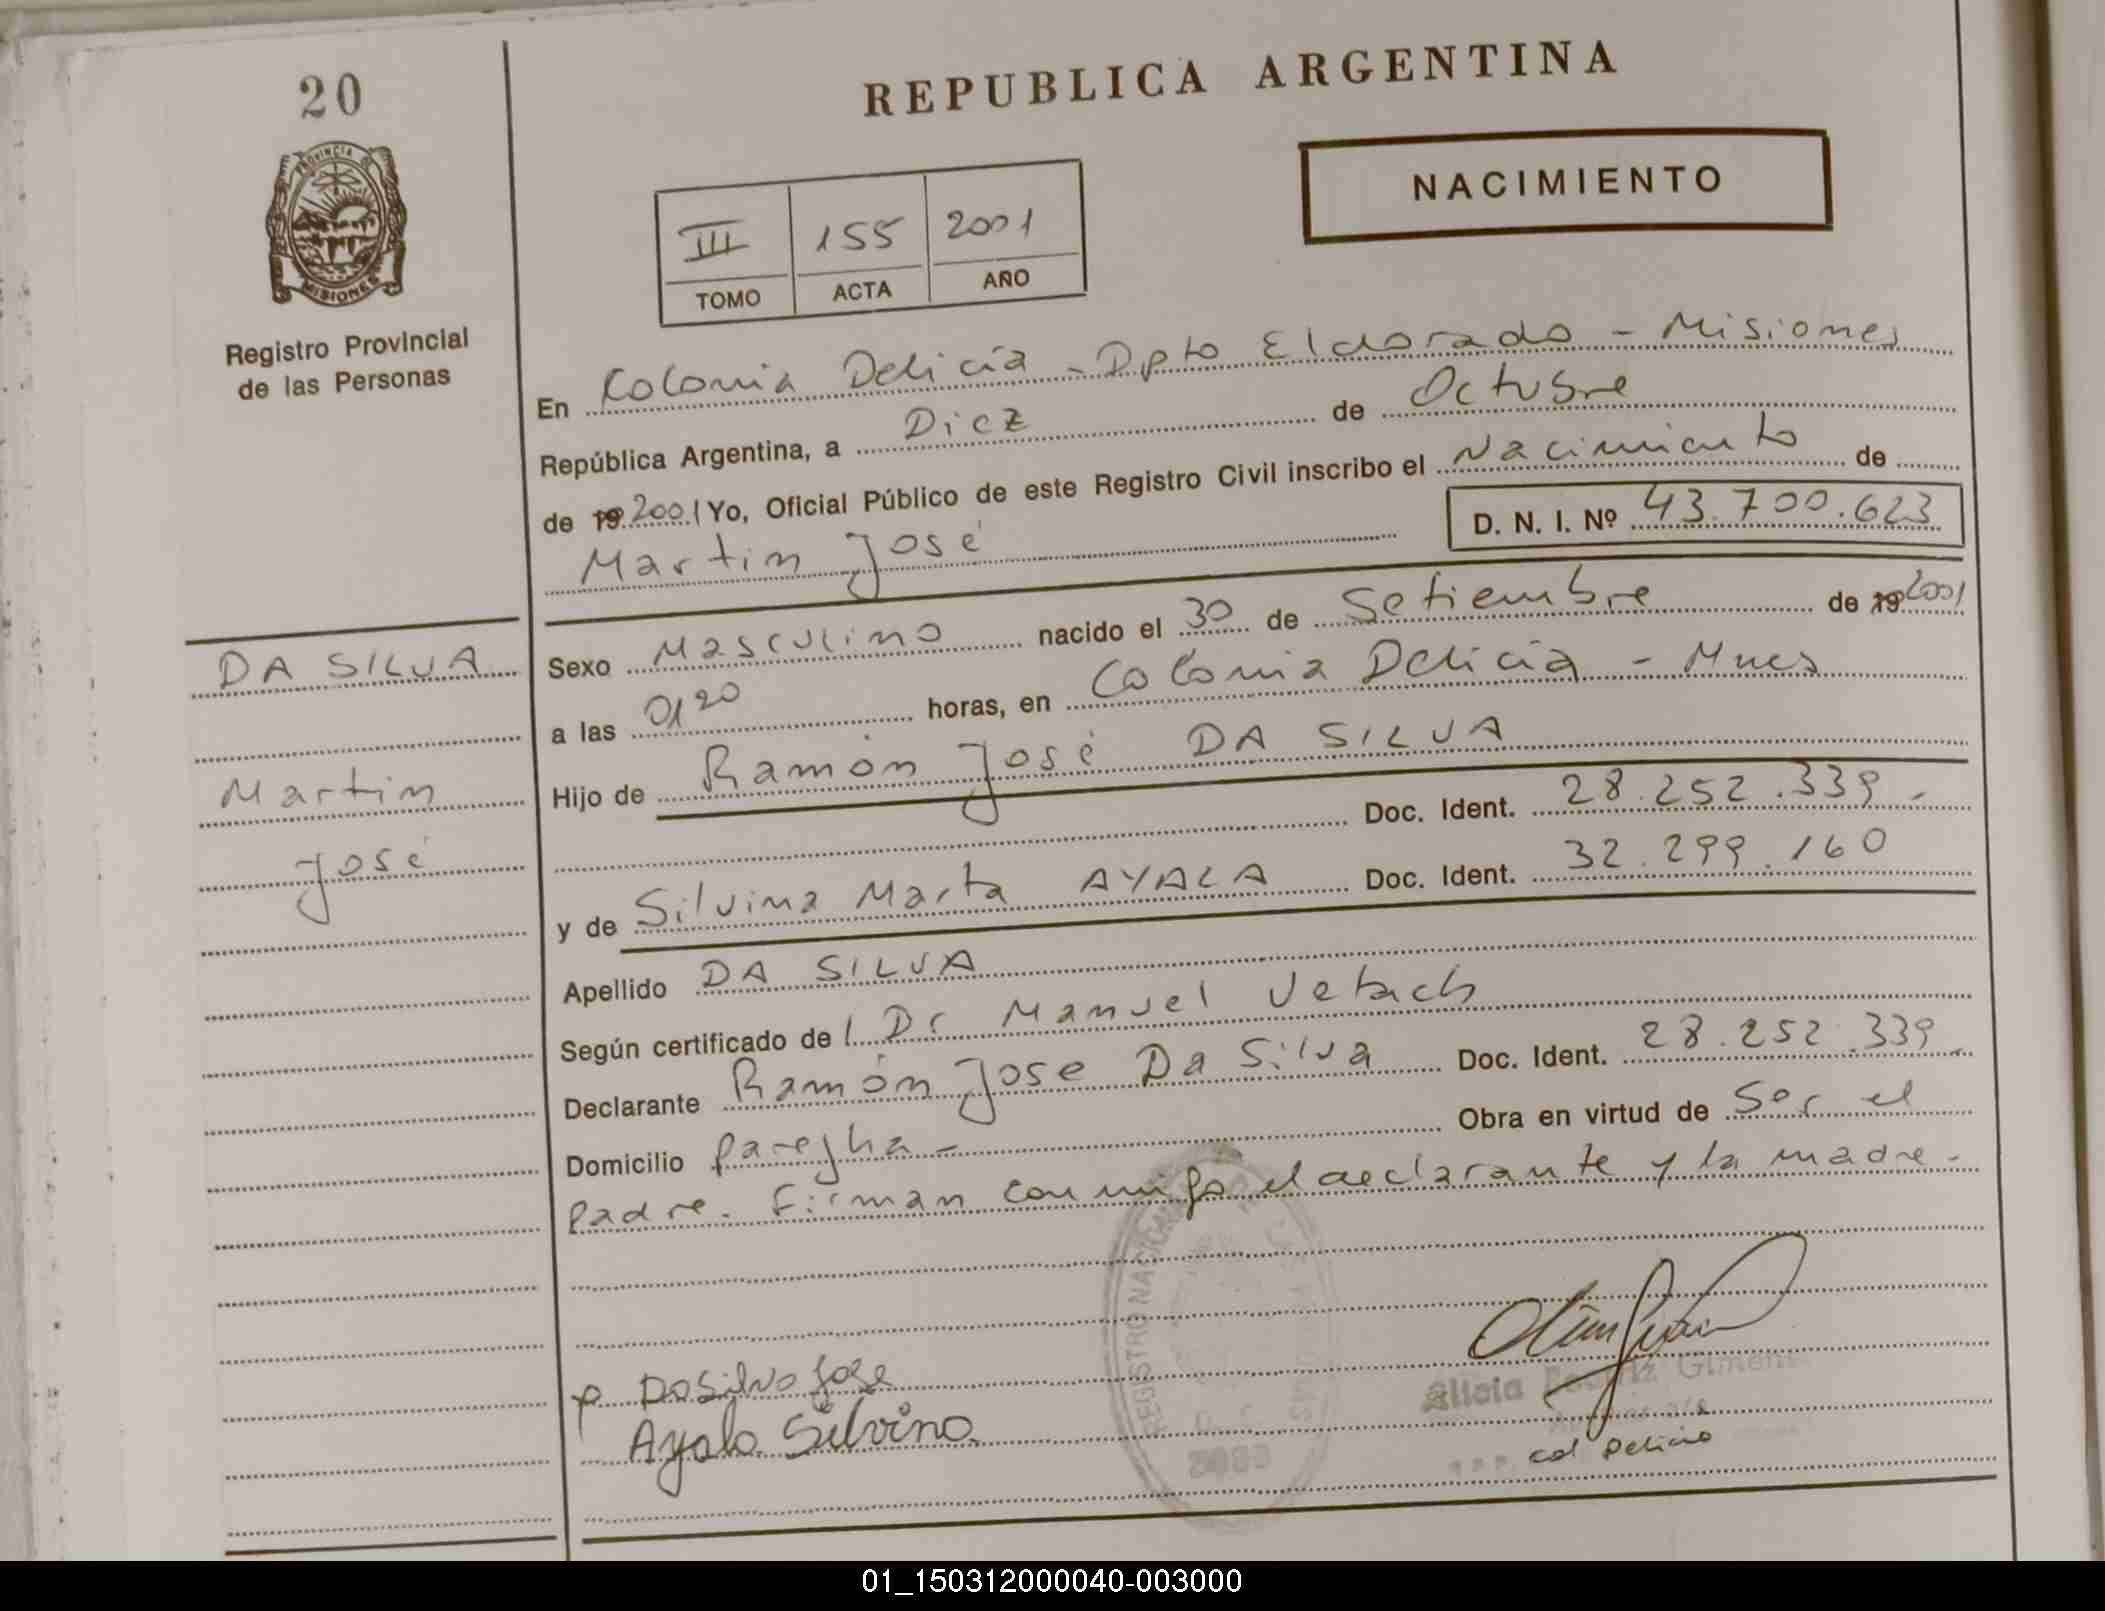 20
PROVINCIA DE
MISIONES
Registro Provincial
de las Personas
REPUBLICA ARGENTINA
NACIMIENTO
III 155 2001
TOMO ACTA AÑO
En Colonia Delicia - Dpto Eldorado - Misiones
República Argentina, a Diez de Octubre
de 19 2001 Yo, Oficial Público de este Registro Civil inscribo el Nacimiento de
Martin José D. N. I. Nº 43.700.623
DA SILVA
Martin
José
Sexo Masculino nacido el 30 de Setiembre de 19 2001
a las 0120 horas, en Colonia Delicia - Mnes
Hijo de Ramón José DA SILVA
Doc. Ident. 28.252.339.-
y de Silvina Marta AYALA Doc. Ident. 32.299.160
Apellido DA SILVA
Según certificado de l Dr Manuel
Declarante Ramón Jose Da Silva Doc. Ident. 28.252.339.
Domicilio Obra en virtud de Ser el
Padre. Firman conmigo el declarante y la madre.-
DaSilva Jose
Ayala Silvina.
REGISTRO NACIONAL DE LAS PERSONAS
Alicia Beatriz Gimenez
col Delicia
01_150312000040-003000